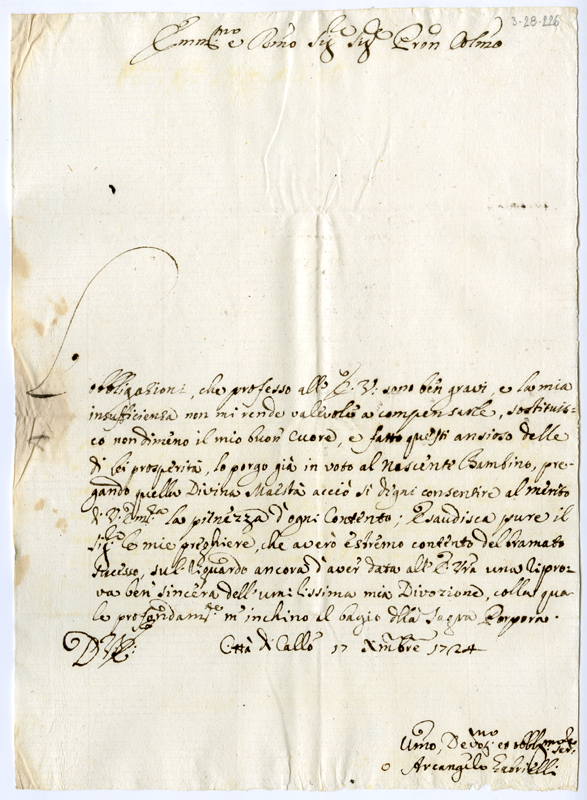 3-28-226
Emm.mo e Rmo Sig.e Sig.e Pron Colmo
L obbligazioni, che professo all' E. V. sono ben gravi, e la mia
insufficienza non mi rende valevole a compensarle, sostituis-
co nondimeno il mio buon Cuore, e fatto questi ansioso delle
di Lei prosperità, lo porgo già in voto al Nascente Bambino, pre-
gando quella Divina Maestà acciò si digni consentire al merito
di V. Em.za la pienezza d'ogni Contento; Esaudisca pure il
Sig.e le mie preghiere, che averò estremo contento del bramato
sucesso, sul riguardo ancora d'aver data all' E. Vra una ripro-
va ben sincera dell' umilissima mia Divozione, colla qua
le profondam.e m'inchino al bagio dlla Sagra Porpora.
D V E: Città di Callo 17 Xmbre 1724
Umo, Devo.mo et obblmo Se.re
Arcangelo Gabrielli